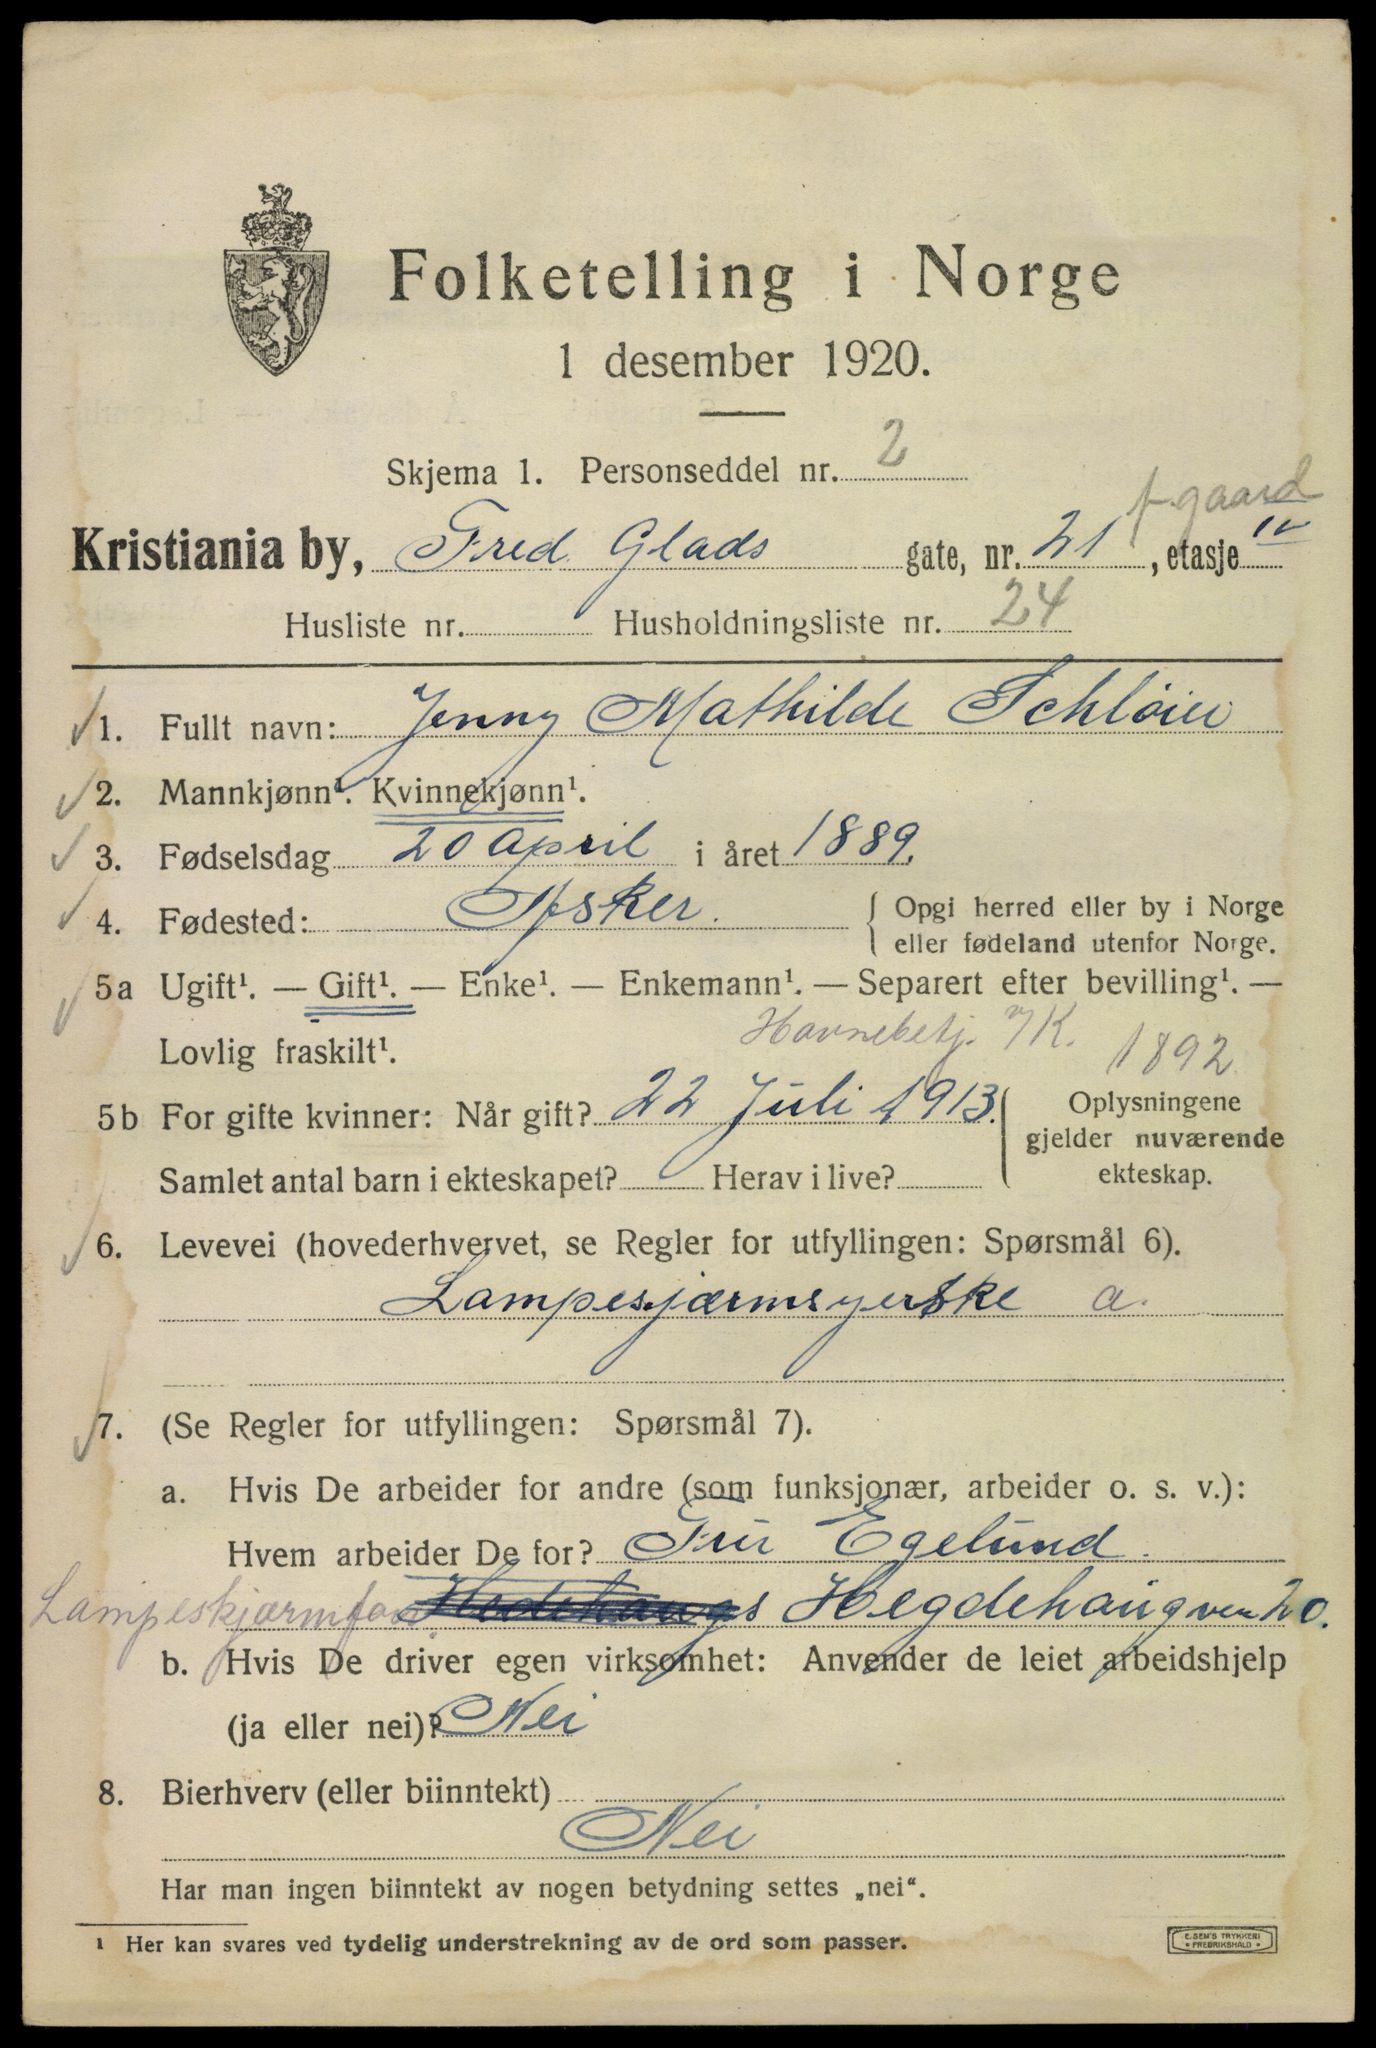 Folketelling i Norge
1 desember 1920.
Skjema 1. Personseddel nr. 2
f. gaard
Kristiania by, Fred. Glads gate, nr. 21, etasje IV
Husliste nr. Husholdningsliste nr. 24
1. Fullt navn: Jenny Mathilde Schløier
2. Mannkjønn¹. Kvinnekjønn¹.
3. Fødselsdag 20 April i året 1889.
4. Fødested: Asker. Opgi herred eller by i Norge
eller fødeland utenfor Norge.
5a Ugift¹. — Gift¹. — Enke¹. — Enkemann¹. — Separert efter bevilling¹. —
Lovlig fraskilt¹. Havnebetj. K. 1892
5b For gifte kvinner: Når gift? 22 Juli 1913. Oplysningene
gjelder nuværende
Samlet antal barn i ekteskapet? Herav i live? ekteskap.
6. Levevei (hovederhvervet, se Regler for utfyllingen: Spørsmål 6).
Lampesjærmsyerske a.
7. (Se Regler for utfyllingen: Spørsmål 7).
a. Hvis De arbeider for andre (som funksjonær, arbeider o. s. v.):
Hvem arbeider De for? Fru Egelund.
Lampeskjærmfor. Hegdehaugven 20.
b. Hvis De driver egen virksomhet: Anvender de leiet arbeidshjelp
(ja eller nei)? Nei
8. Bierhverv (eller biinntekt)
Nei
Har man ingen biinntekt av nogen betydning settes „nei“.
¹ Her kan svares ved tydelig understrekning av de ord som passer.
E. SEM'S TRYKKERI
• FREDRIKSHALD •